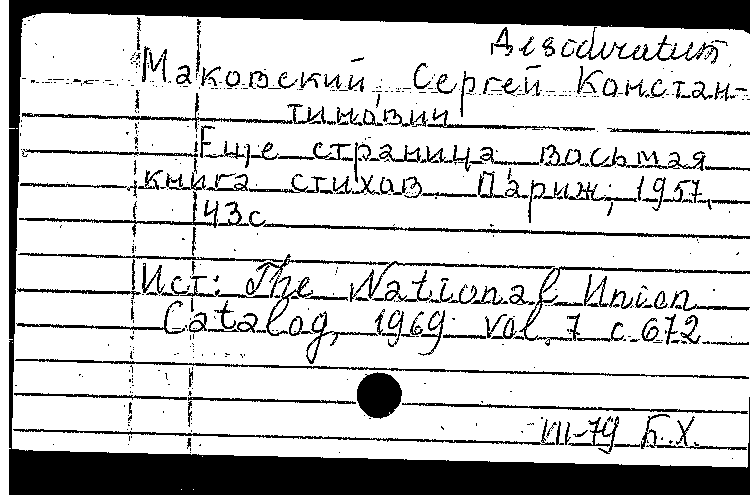 Desideratum
Маковский, Сергей Констан-
тинович
Еще страница, восьмая
книга стихов. Париж, 1957,
43с
Ист: The National Union
Catalog, 1969 vol. 7 с.672
VII-79 Б.Х.